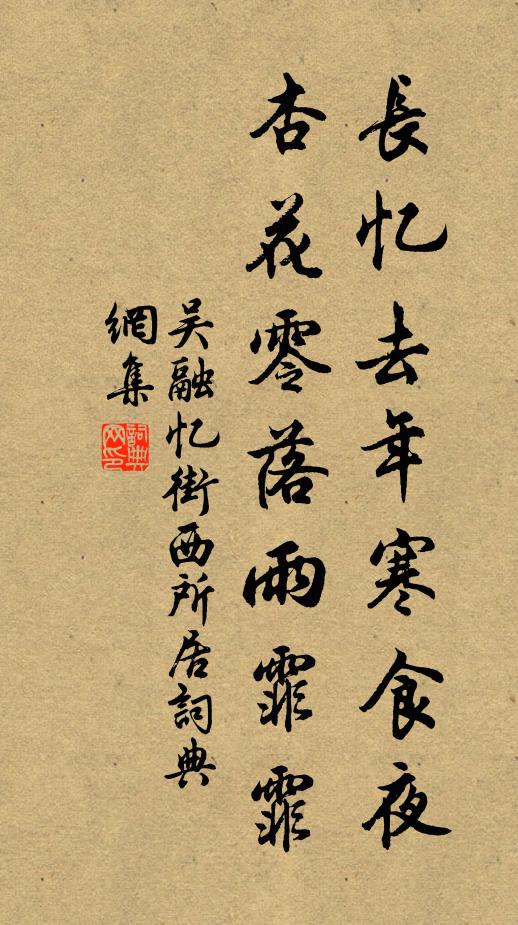 長忆去年寒食夜
杏花零落雨霏霏
吴融忆街西所居詞典
網集
詞典網印